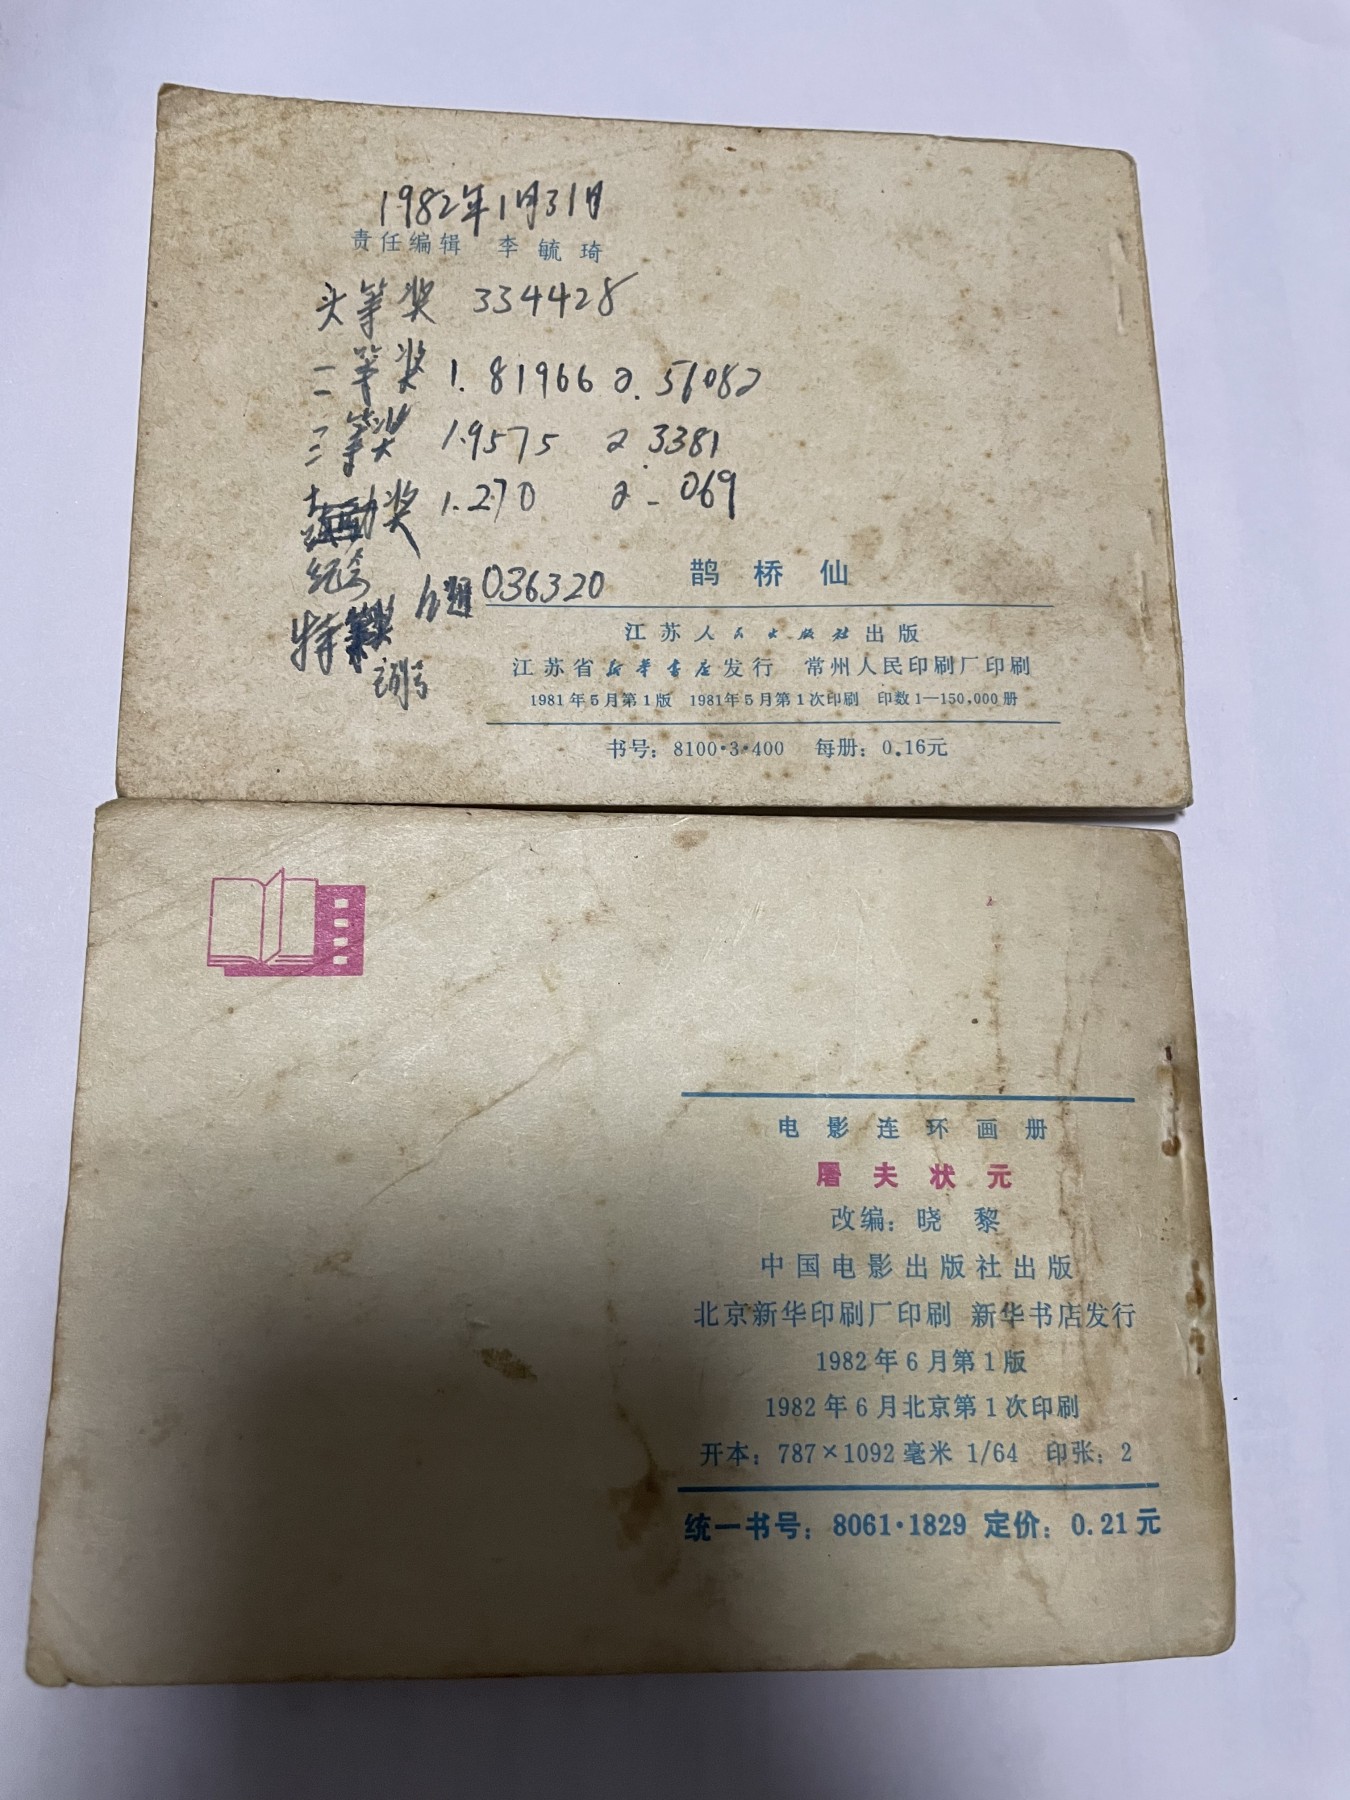 1982年1月31日
责任编辑 李毓琦
头等奖 334428
二等奖 1.81966 2.56082
三等奖 1.9575 2 3381
奖 1.270 2. 069
纪念
036320
特
鹊桥仙
江苏人民出版社出版
江苏省新华书店发行 常州人民印刷厂印刷
1981年5月第1版 1981年5月第1次印刷 印数1—150,000册
书号：8100·3·400 每册：0.16元
电影连环画册
屠夫状元
改编：晓 黎
中国电影出版社出版
北京新华印刷厂印刷 新华书店发行
1982年6月第1版
1982年6月北京第1次印刷
开本：787×1092毫米 1/64 印张：2
统一书号：8061·1829 定价：0.21元